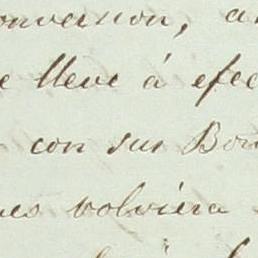 onversion, a
e lleve á efec
con sus Bon
es volviera